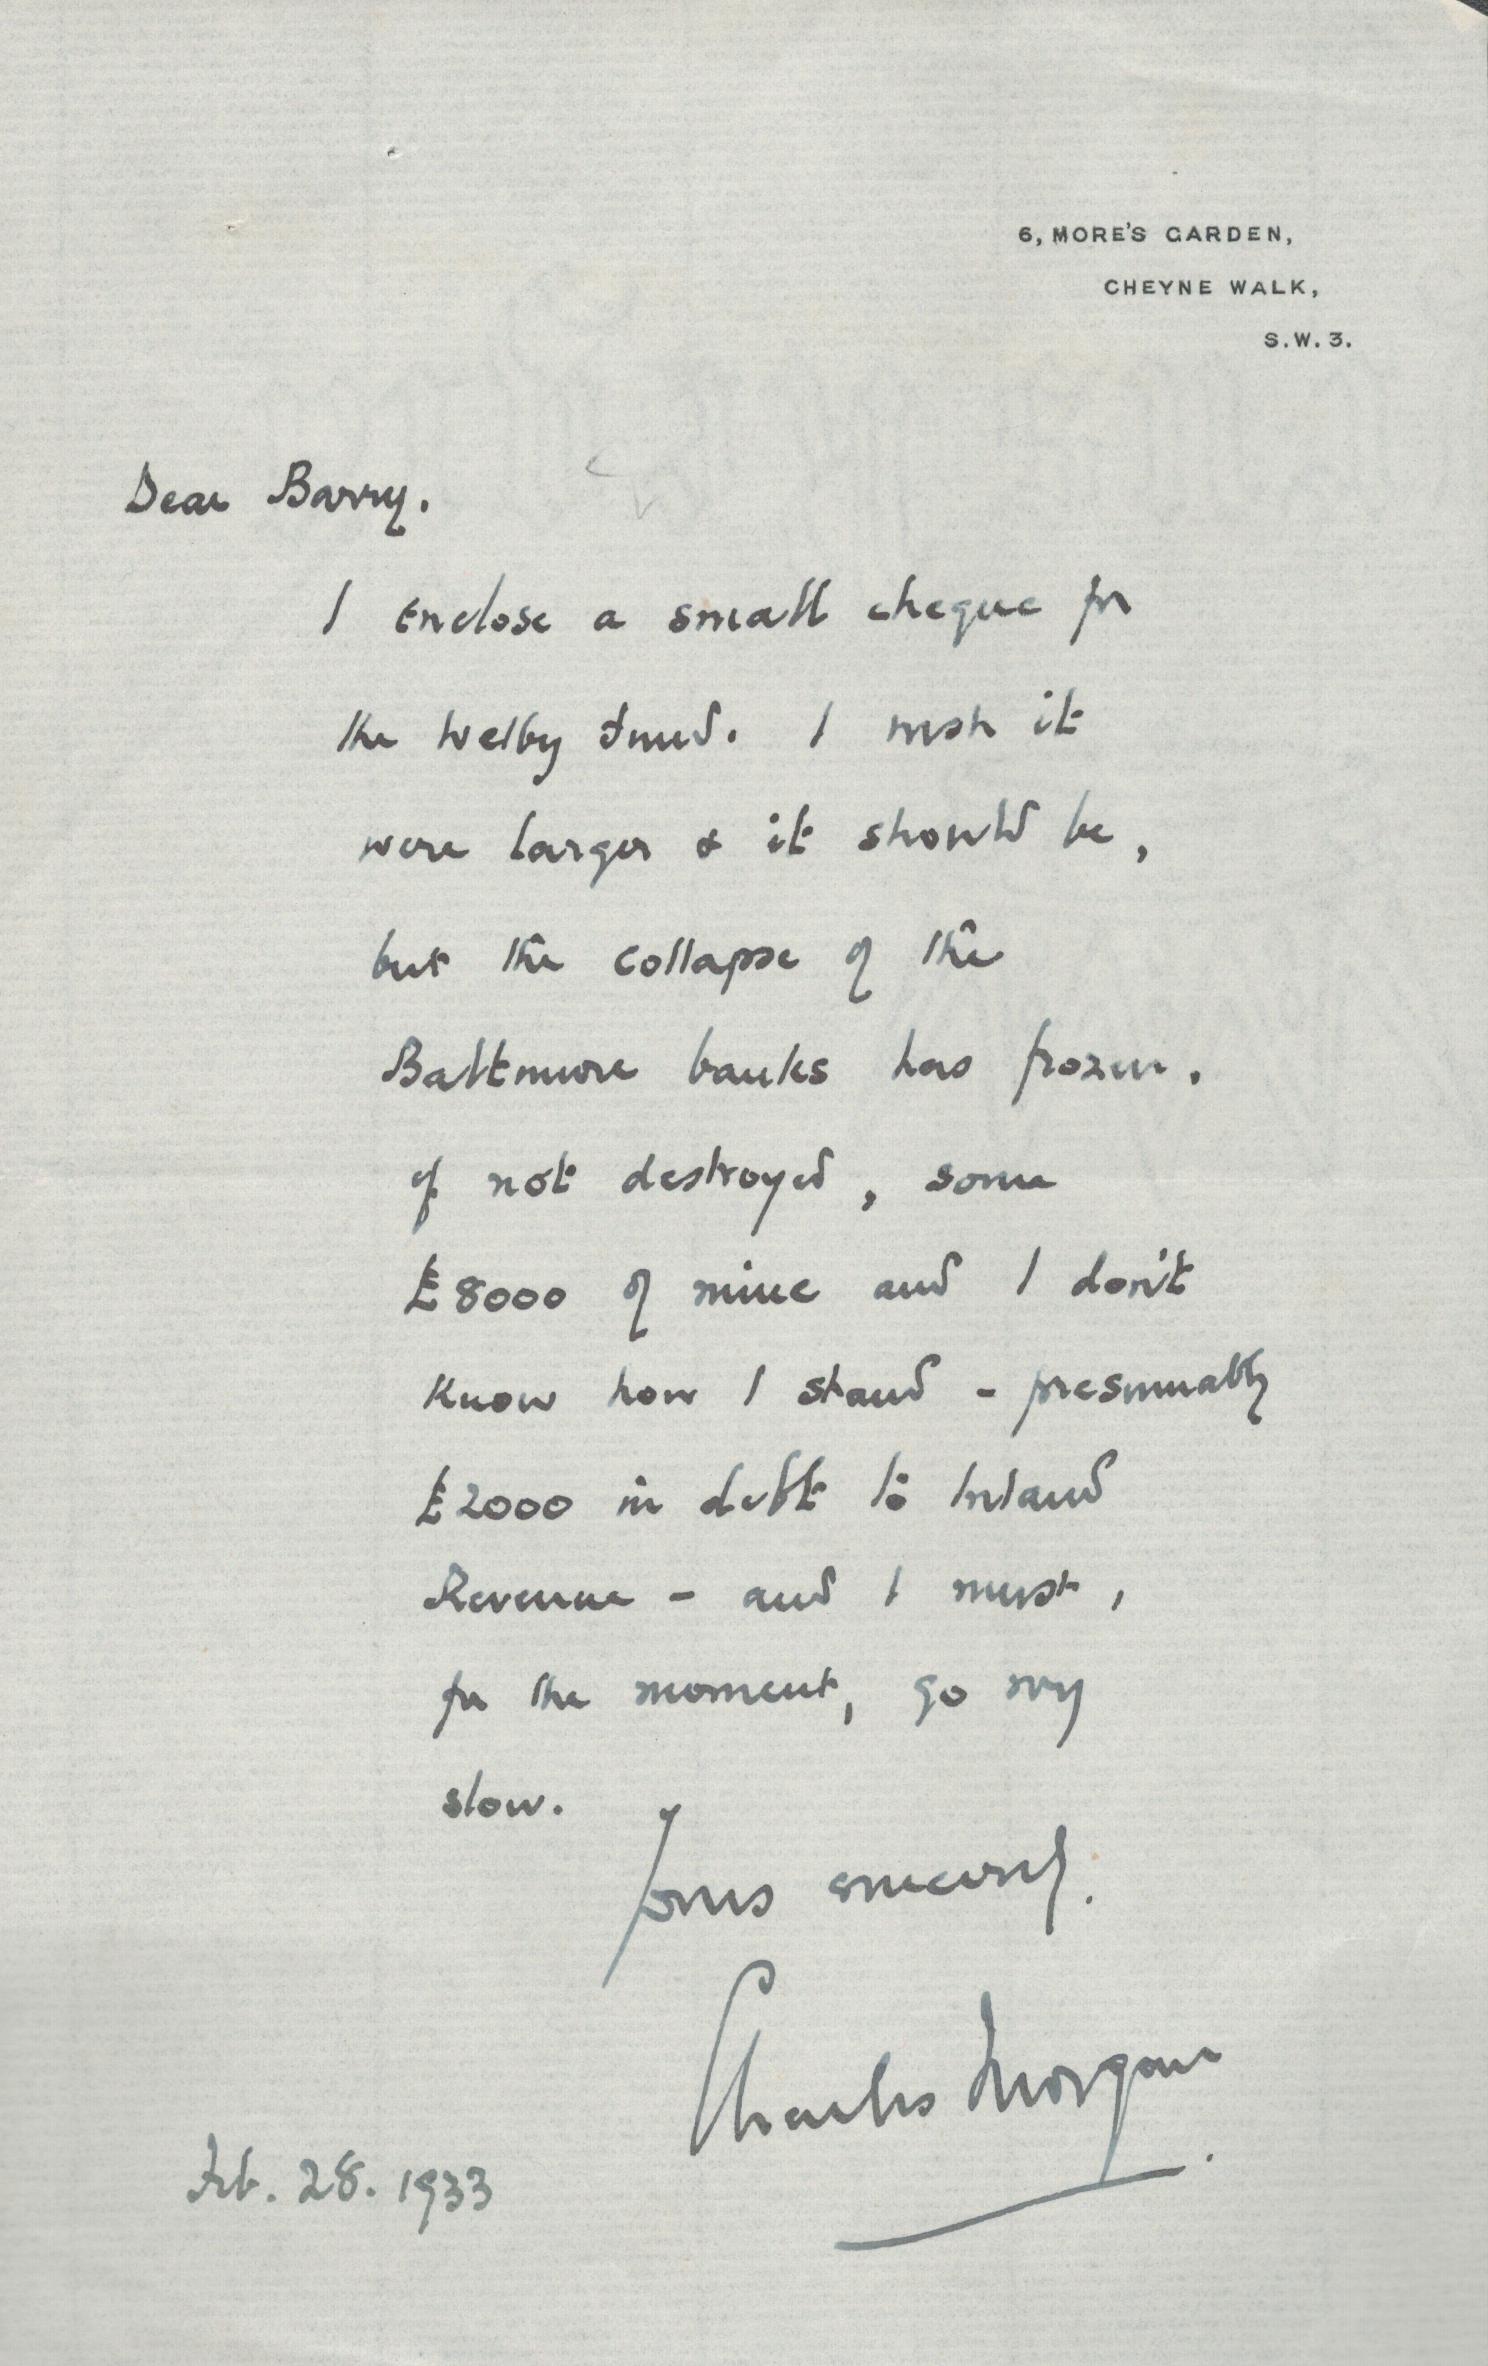 6, MORE'S GARDEN,
CHEYNE WALK,
S.W.3.
Dear Barry.
I enclose a small cheque for
the Welby Fund. I wish it
were larger & it should be,
but the collapse of the
Baltimore banks has frozen,
if not destroyed, some
£8000 of mine and I don't
know how I stand - presumably
£2000 in debt to Inland
Revenue - and I must,
for the moment, go very
slow.
Yours sincerely.
Charles Morgan.
Feb. 28. 1933